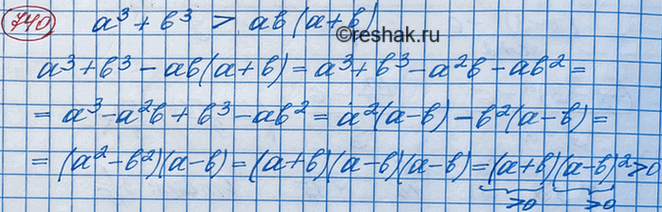 740 a³ + b³ > ab(a+b)
©reshak.ru
a³+b³ - ab(a+b) = a³+b³-a²b-ab² =
= a³-a²b+b³-ab² = a²(a-b)-b²(a-b) =
= (a²-b²)(a-b) = (a+b)(a-b)(a-b) = (a+b)(a-b)²>0
>0 >0